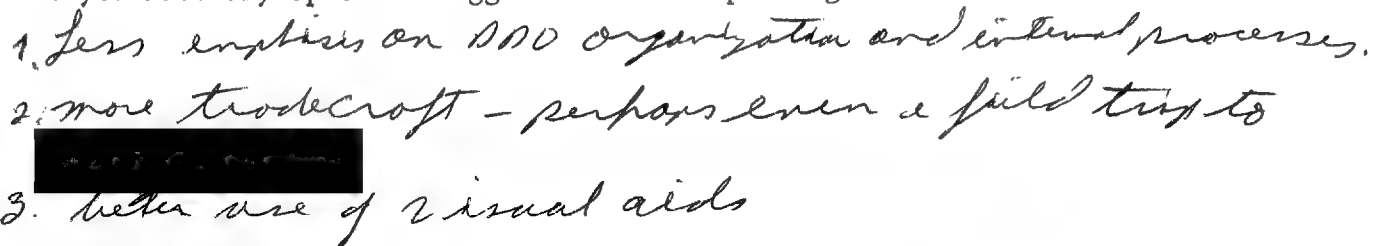 1. Less emphasis on DDO organization and internal processes.
2. more tradecraft - perhaps even a field trip to
3. better use of visual aids